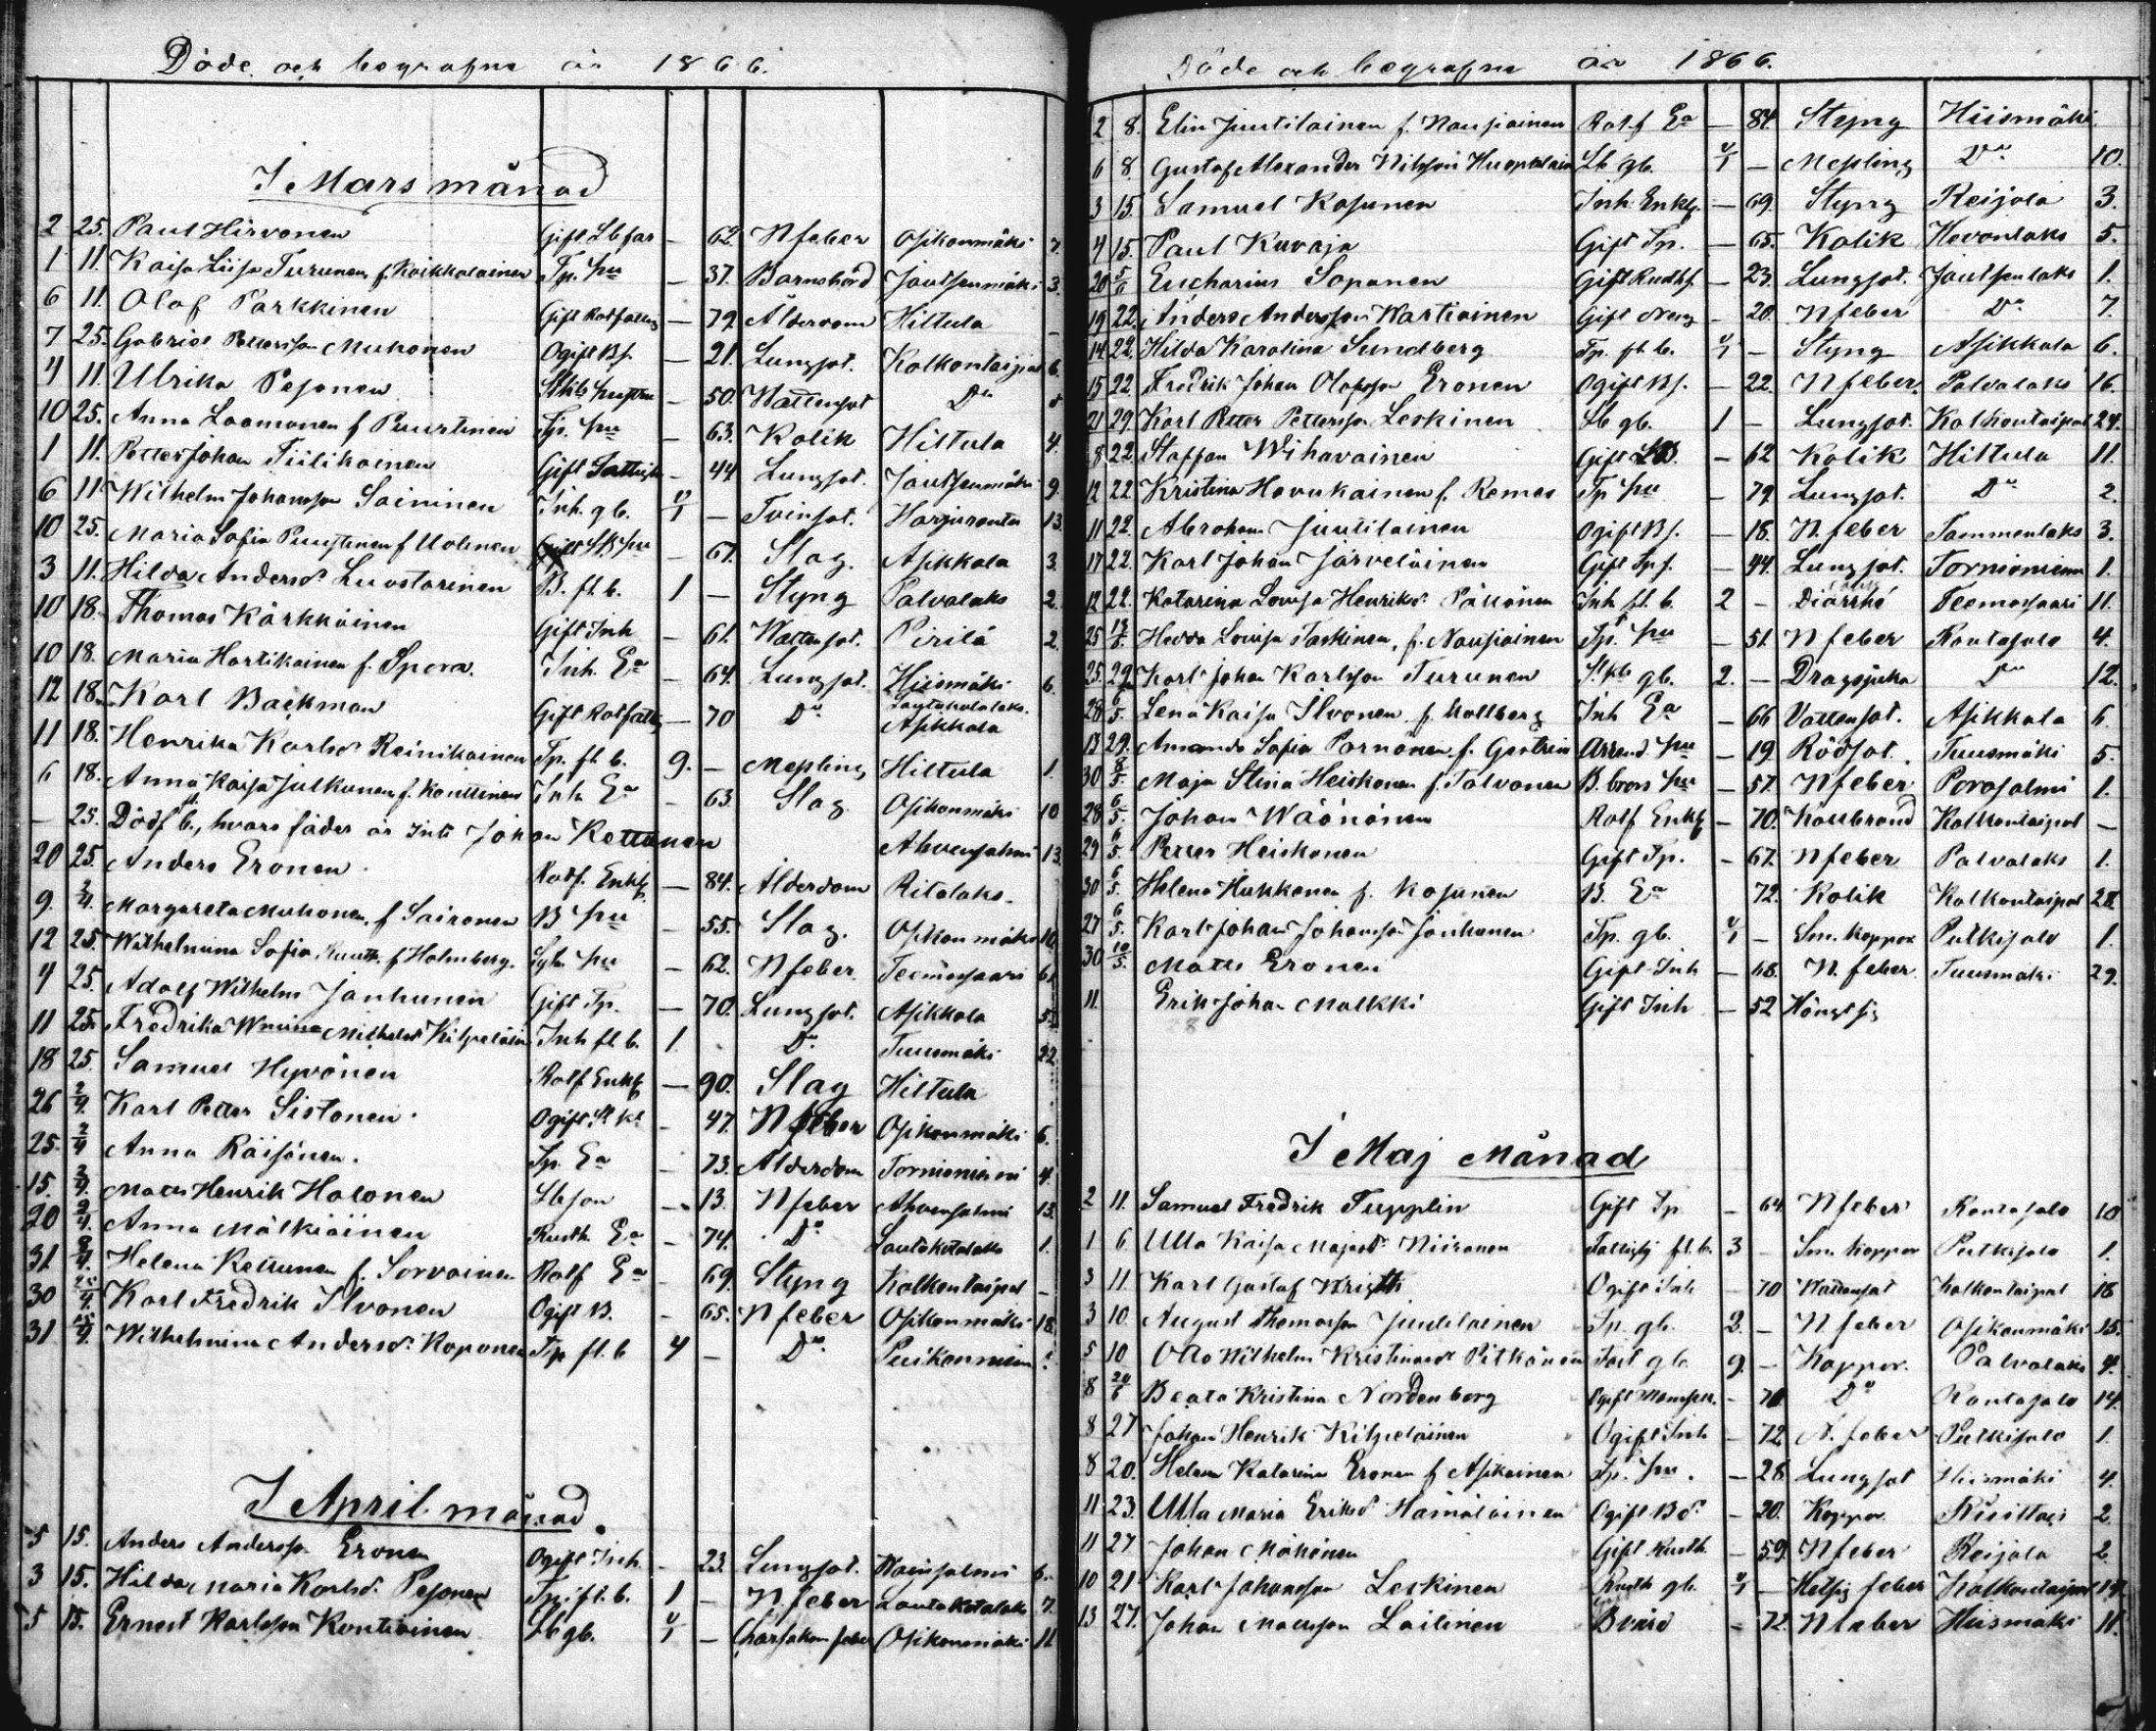 Döde och begrafne år 1866.
I Mars månad
2 25. Paul Hirvonen Gift Lbfar – 62. Nfeber Osikonmäki 7.
1 11. Kaisa Liisa Turunen f. Koikkalainen Tp. hu – 37. Barnsbörd Joutsenmäki 3.
6 11. Olof Parkkinen Gift Rotfattig – 79. Ålderdom Hiltula –
7 25. Gabriel Pettersson Muhonen Ogift Bs. – 21. Lungsot. Kolkontaipal 6.
4 11. Ulrika Pesonen – 50. Wattusot Do
10 25. Anna Laamanen f Puustinen Tp. hu – 63. Kolik Hiltula 4.
1 11. Petter Johan Tiilikainen Gift – 44 Lungsot. Joutsenmäki 9.
6 11 Wilhelm Johansson Saininen Inh. gb. 4/1 – Tvinsot. Harjuranta 13.
10 25. Maria Sofia Puustinen f Uolinen hu – 67. Slag. Asikkala 3.
3 11. Hilda Andersdr Luostarinen B. fl. b. 1 – Styng Palvalaks 2.
10 18. Thomas Kärkkäinen Gift Inh – 61. Wattusot. Pirilä 2.
10 18. Maria Hartikainen f. Spora. Inh. Ea – 64. Lungsot. Hiismäki 6.
12 18. Karl Backman Gift Rotfattig – 70 Do Lautakotalaks. Asikkala
11 18. Henrika Karlsdr Reinikainen Tp. fl. b. 9. – Messling Hiltula 1.
6 18. Anna Kaisa Julkunen f. Kauttinen Inh Ea – 63. Slag. Osikonmäki 10
– 25. Dödf b., hvars fader är Inh Johan Kettunen Ahvensalmi 13.
20 25. Anders Eronen Rotf. Enkl – 84. Ålderdom Ritolaks.
9. 2/4. Margareta Muhonen f Sairanen B hu – 55. Slag. Osikonmäki 10.
12 25. Wilhelmina Sofia Ruuth f Holmberg. hu – 62. Nfeber Teemassaari 6.
4 25. Adolf Wilhelm Janhunen Gift Tp. – 70. Lungsot. Asikkala 5.
11 25. Fredrika Wmina Kilpeläin Inh fl. b. 1. Do Tuusmäki 22.
18 25. Samuel Hyvönen Rotf Enkl – 90. Slag Hiltula
26 2/4. Karl Petter Sistonen Ogift – 47. Nfeber Osikonmäki 6.
25. 2/4 Anna Räisänen. Tp. Ea – 73. Ålderdom Tornioniemi 4.
15. 2/4. Matts Henrik Halonen Lbson – 13. Nfeber Ahvensalmi 13.
20 2/4. Anna Mälkiäinen Rusth Ea – 74. Do Lautakotalaks 1.
31 8/4. Helena Kettunen f. Sorvainen Rotf Ea – 69. Styng Kolkontaipal –
30 Karl Fredrik Ilvonen Ogift B. – 65. Nfeber Osikonmäki 18.
31 15/4. Wilhelmina Andersdr. Koponen Tp fl. b 4 – Do Puikonniem
I April månad.
5 15. Anders Andersson Eronen Ogift Inh. – 23. Lungsot. Wainsalmi 6.
3 15. Hilda Maria Karlsdr. Pesonen Tp. fl. b. 1 – Nfeber Lautakotalaks 7.
5 15. Ernest Karlsson Kontiainen Lb gb. 4/1 – Charlakan feber Osikonmäki 11
Döde och begrafne år 1866.
2 8. Elin Juutilainen f. Nousiainen Rotf Ea – 84. Styng Hiismäki.
6 8. Gustaf Alexander Nilsson Lb gb. 4/1 – Messling Do 10.
3 15. Samuel Kosunen Inh. Enkl. – 69. Styng Reijola 3.
4 15. Paul Kuvaja Gift Tp. – 65. Kolik Hevonlaks 5.
20 5/6 Eucharius Soponen Gift Rusth. – 23. Lungsot. Joutsenlaks 1.
19 22. Anders Andersson Wartiainen Gift – 20. Nfeber Do 7.
14 22. Hilda Karolina Sundberg Tp. fl. b. 4/1 – Styng Asikkala 6.
15 22. Fredrik Johan Olofsson Eronen Ogift Bs. – 22. Nfeber. Palvalaks 16.
21 29. Karl Petter Pettersson Leskinen Lb gb. 1 – Lungsot. Kolkontaipal 24.
8 22. Staffan Wihavainen Gift LB. – 62 Kolik Hiltula 11.
12 22. Kristina Havukainen f. Remes Tp hu – 79. Lungsot. Do 2.
11 22. Abraham Juutilainen Ogift Bs. – 18. Nfeber Tammenlaks 3.
17 22. Karl Johan Järveläinen Gift Tp. – 44. Lungsot. Tornioniemi 1.
12 22. Katarina Lovisa Henriksdr. Pällönen Inh fl. b. 2 – Diarrhé Teemassaari 11.
25 13/5. Hedda Lovisa Taskinen, f. Nousiainen Tp. hu – 51. Nfeber Rantasalo 4.
25. 29. Karl Johan Karlsson Turunen gb. 2. – Dragsjuka Do 12.
28 6/5. Lena Kaisa Ilvonen f. Hollberg Inh Ea – 66 Vattusot. Asikkala 6.
13 29. Amanda Sofia Parnänen f. Arrend. hu – 19. Rödsot. Tuusmäki 5.
30 8/5 Maja Stina Heiskanen f. Tolvanen B. brors hu – 57. Nfeber Porosalmi 1.
28 6/5. Johan Wäänänen Rotf Enkl – 70. Kallbrand Kolkontaipal –
29 6/5. Petter Heiskanen Gift Tp. – 67. Nfeber Palvalaks 1.
30 6/5. Helena Hukkanen f. Kosunen B. Ea 72. Kolik Kolkontaipal 28
27 6/5. Karl Johan Johansson Janhunen Tp. gb. 4/1 – Sm. koppor Putkisalo 1.
30 10/5. Matts Eronen Gift Inh – 68. Nfeber Tuusmäki 29.
11. Erik Johan Malkki Gift Inh – 52 Hängt sig
28
I Maj Månad
2 11. Samuel Fredrik Tupplin Gift Tp – 64. Nfeber Rantasalo 10
1 6. Ulla Kaisa Niironen fl. b. 3 – Sm. koppor Putkisalo 1.
3 11. Karl Gustaf Ogift Inh 70 Wattusot Kolkontaipal 18
3 10. August Thomasson Juutilainen Tp. gb. 2. – Nfeber Osikonmäki 15.
5 10 Otto Wilhelm Pitkänen gb. 9. – Koppor. Palvalaks 4.
8 20/6 Beata Kristina Nordenberg Ogift Mamsell. – 70. Do Rantasalo 14.
8 27 Johan Henrik Kilpeläinen Ogift Inh – 72 N. feber Putkisalo 1.
8 20. Helena Katarina Eronen f Asikainen Tp. hu. – 28. Lungsot Hiismäki 4.
11 23. Ulla Maria Eriksdr Hämäläinen Ogift Bdr – 20. Koppor 2.
11 27 Johan Mähönen Gift Rusth. – 59. Nfeber Reijola 2.
10 21 Karl Johansson Leskinen Rusth gb. 4/1 – Hetsig feber Kolkontaipal 19.
13 27. Johan Mattsson Lailinen – 72. Nfeber Hiismäki 11.